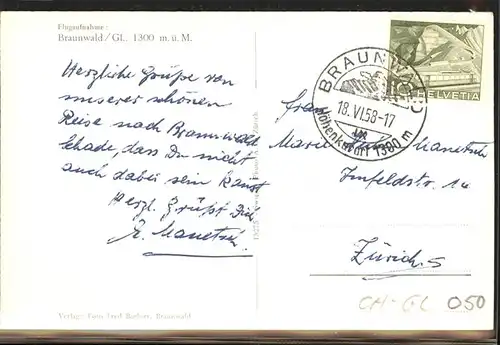 Flugaufnahme:
Braunwald/GL. 1300 m. ü. M.
Herzliche Grüße von
unserer schönen
Reise nach Braunwald
schade, dass Du nicht
auch dabei sein kannst
Herzl. Grüßt Dich
Manetsch
Verlag: Foto Fred Braunwald
HELVETIA
BRAUNWALD
18.VI.58-17
Höhenkurort 1300 m
Frau
Marie Manetsch
14
Zürich 5
CH-GL 050